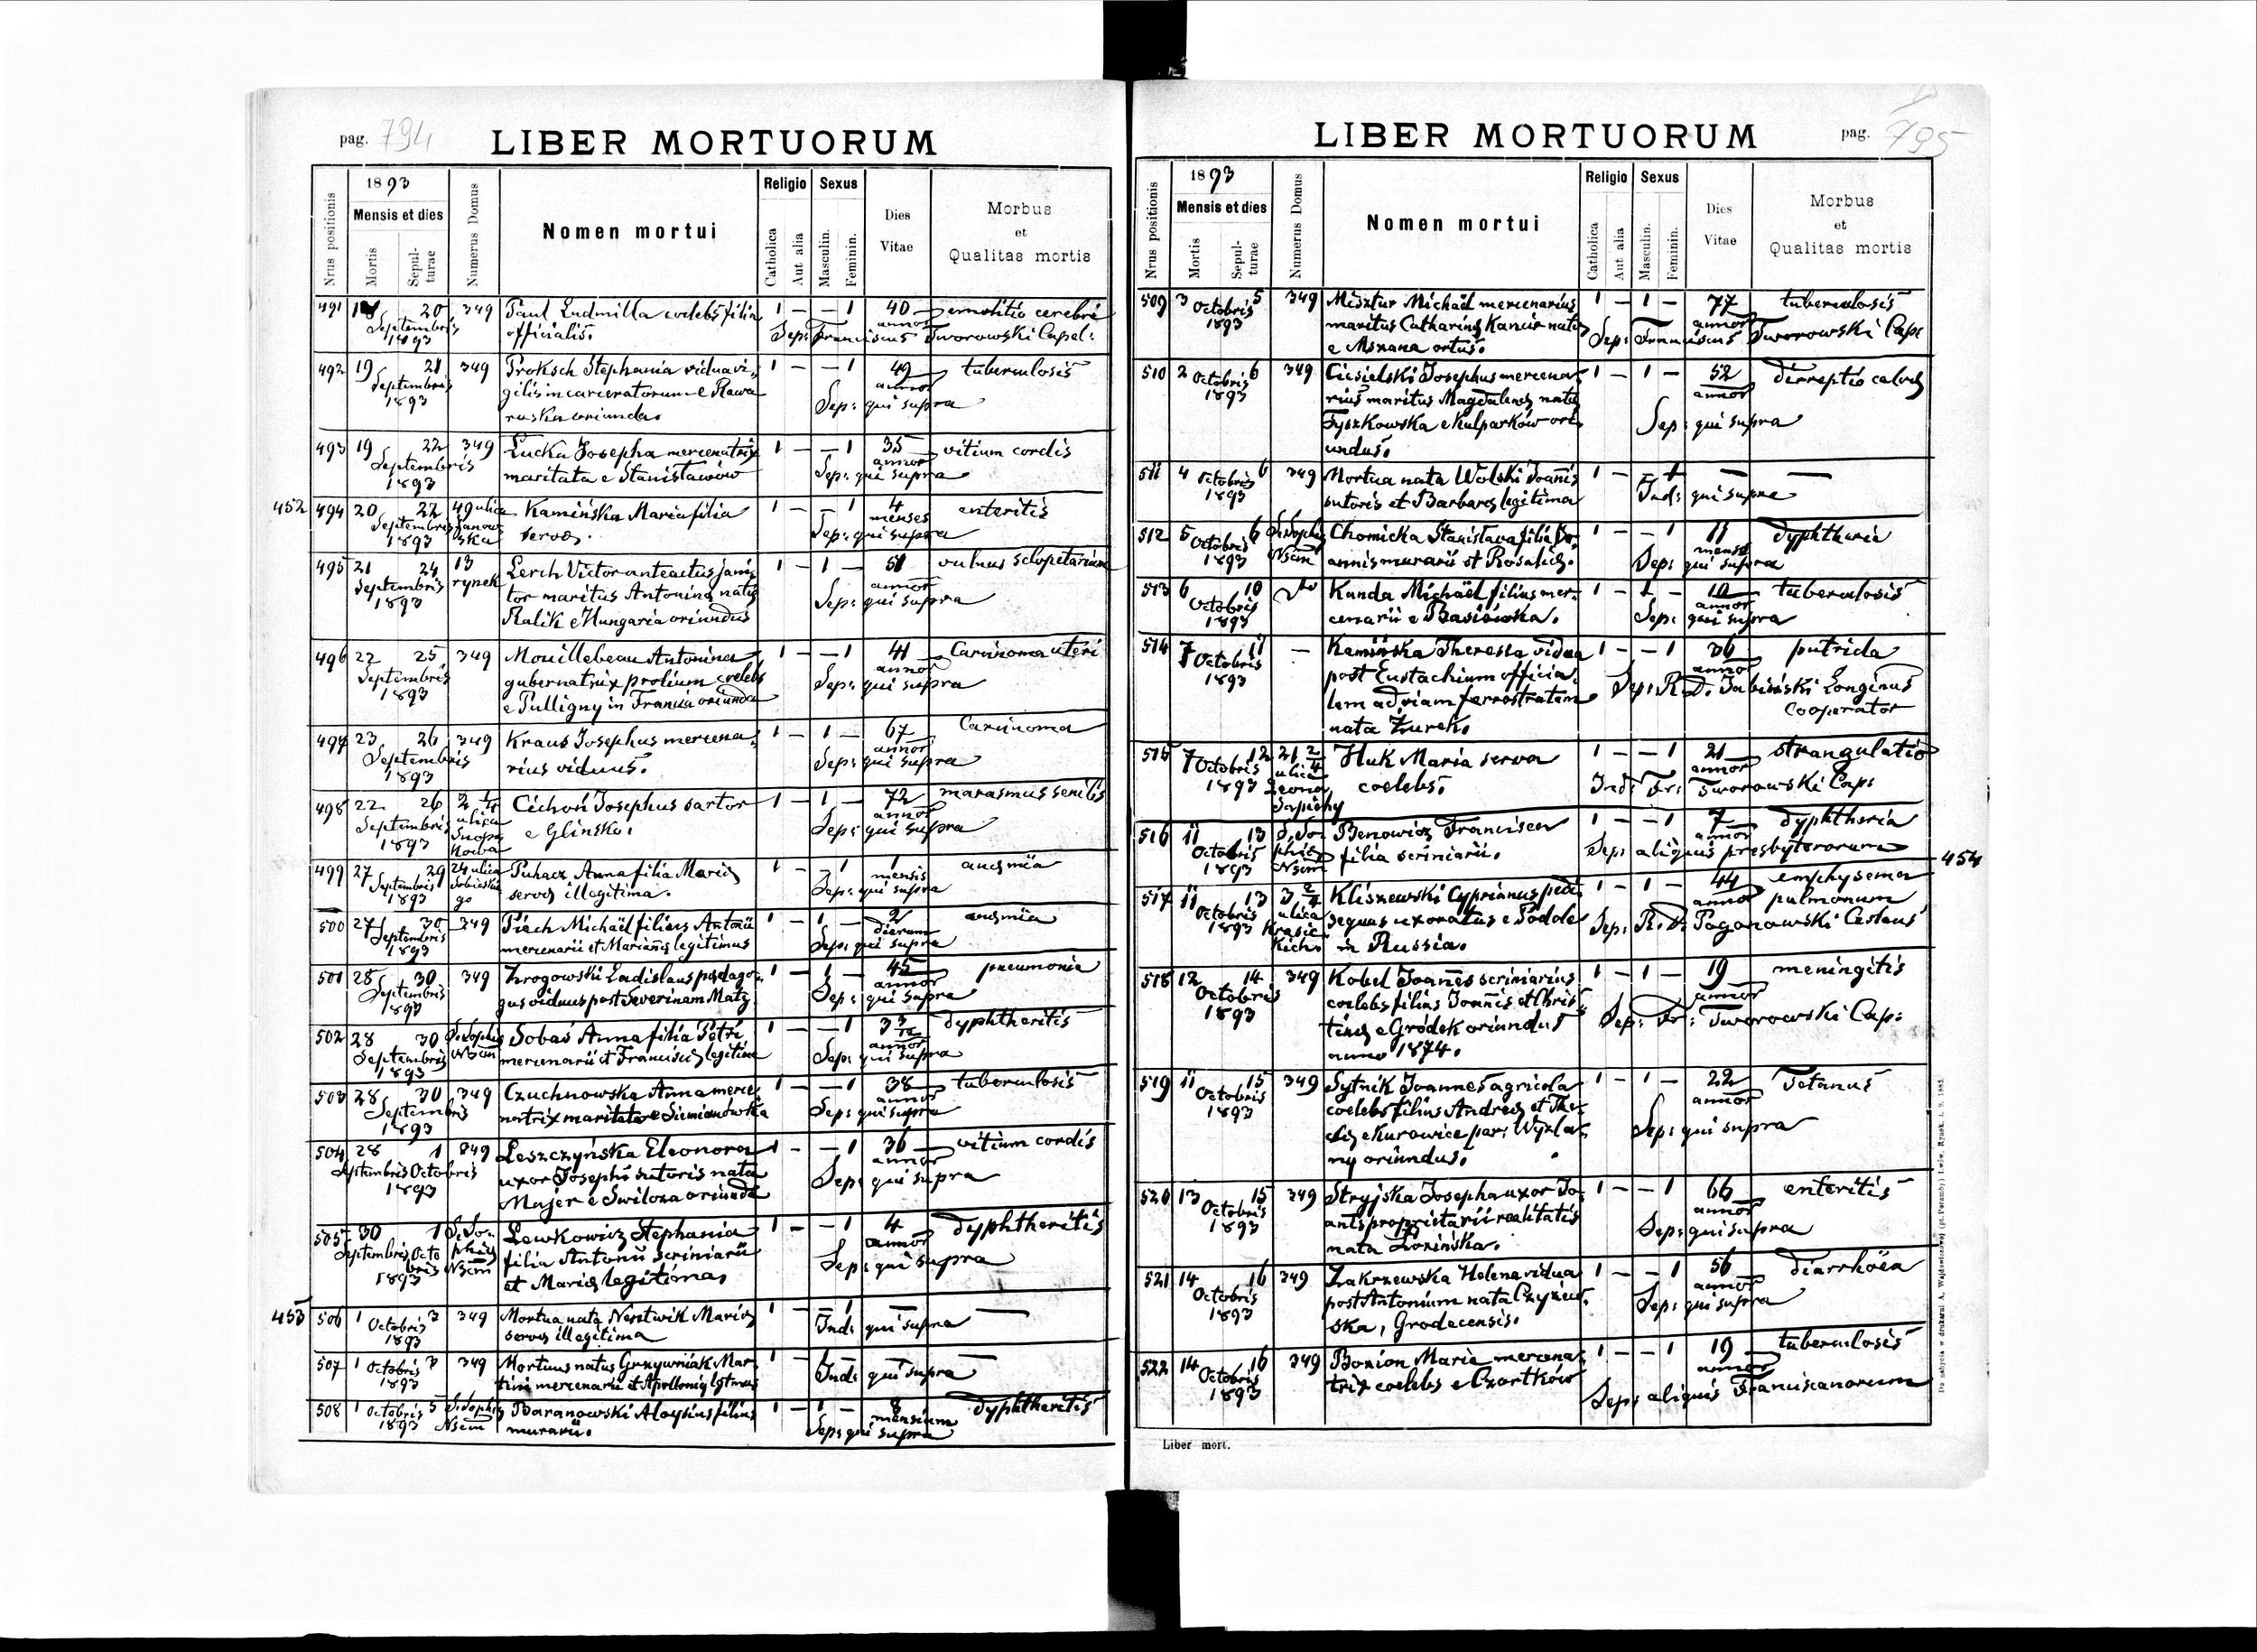 pag. 794
LIBER MORTUORUM
1893
Mensis et dies
Nrus positionis
Mortis
Sepul-
turae
Numerus Domus
Nomen mortui
Religio
Sexus
Catholica
Aut alia
Masculin.
Feminin.
Dies
Vitae
Morbus
et
Qualitas mortis
491 20 349 Paul Ludmilla coelebs filia 1 — — 1 40 emolitio cerebri
Septembris officialis. annor
1893 Sep: Franciscus Tworowski Capel:
492 19 21 349 Proksch Stephania vidua vi- 1 — — 1 49 tuberculosis
Septembris gilis incarceratorum e Rawa annor
1893 ruska oriunda. Sep: qui supra
493 19 22 349 Lucka Josepha mercenatrix 1 — — 1 35 vitium cordis
Septembris maritata e Stanisławów annor
1893 Sep: qui supra
452 494 20 22 49 ulica Kamińska Maria filia 1 — — 1 4 enteritis
Septembris Janow servae. menses
1893 ska Sep: qui supra
495 21 24 13 Lerch Victor anteactus jani 1 — 1 — 51 vulnus sclopetarium
Septembris rynek tor maritus Antoninae natae annor
1893 Ralik e Hungaria oriundus Sep: qui supra
496 22 25 349 Mouillebeau Antonina 1 — — 1 41 Carcinoma uteri
Septembris gubernatrix prolium coelebs annor
1893 e Pulligny in Francia oriunda Sep: qui supra
497 23 26 349 Kraus Josephus mercena- 1 — 1 — 67 Carcinoma
Septembris rius viduus. annor
1893 Sep: qui supra
498 22 26 2 1/4 Cichoń Josephus sartor 1 — 1 — 72 marasmus senilis
Septembris ulica e Glinsko. annor
1893 Snop Sep: qui supra
kowa
499 27 29 24 ulica Puhacz Anna filia Mariae 1 — — 1 1 anaemia
Septembris Sobieskie servae illegitima. mensis
1893 go Sep: qui supra
500 27 30 349 Piech Michaël filius Antonii 1 — 1 — 2 anaemia
Septembris mercenarii et Mariannae legitimus dierum
1893 Sep: qui supra
501 28 30 349 Zrogowski Ladislaus paedago- 1 — 1 — 45 pneumonia
Septembris gus viduus post Severinam Maty annor
1893 Sep: qui supra
502 28 30 S. Sophiae Sobas Anna filia Petri 1 — — 1 dyphtheritis
Septembris Nscm mercenarii et Franciscae legitima annor
1893 Sep: qui supra
503 28 30 349 Czuchnowska Anna merce- 1 — — 1 38 tuberculosis
Septembris natrix maritata e Siemianówka annor
1893 Sep: qui supra
504 28 1 349 Leszczyńska Eleonora 1 — — 1 36 vitium cordis
Septembris Octobris uxor Josephi sutoris nata annor
1893 Majer e Swilcza oriunda Sep: qui supra
505 30 1 S. So- Lewkowicz Stephania 1 — — 1 4 dyphtheritis
Septembris Octo phiae filia Antonii scriniarii annor
bris Nscm et Mariae legitima. Sep: qui supra
1893
453 506 1 3 349 Mortua nata Mariae 1 — — 1 — —
Octobris servae illegitima Ind: qui supra
1893
507 1 3 349 Mortuus natus Grzywniak Mar- 1 — 1 — — —
Octobris tini mercenarii et Apolloniae lgtmus Ind: qui supra
1893
508 1 5 S. Sophiae Baranowski Aloysius filius 1 — 1 — 8 dyphtheritis
Octobris Nscm murarii. mensium
1893 Sep: qui supra
LIBER MORTUORUM
pag. 795
1893
Mensis et dies
Nrus positionis
Mortis
Sepul-
turae
Numerus Domus
Nomen mortui
Religio
Sexus
Catholica
Aut alia
Masculin.
Feminin.
Dies
Vitae
Morbus
et
Qualitas mortis
509 3 5 349 Misztur Michaël mercenarius 1 — 1 — 77 tuberculosis
Octobris maritus Catharinae Kancir natae annor
1893 e Mszana ortus. Sep: Franciscus Tworowski Cap:
510 2 6 349 Ciesielski Josephus mercena- 1 — 1 — 52 dirreptio calvae
Octobris rius maritus Magdalenae natae annor
1893 Tyszkowska e Kulparków ori- Sep: qui supra
undus.
511 4 6 349 Mortua nata Wolski Joannis 1 — — 1 — —
Octobris sutoris et Barbarae legitima Ind: qui supra
1893
512 5 6 S. Sophiae Chomicka Stanislava filia Jo- 1 — — 1 11 dyphtheria
Octobris Nscm annis murarii et Rosaliae. mens
1893 Sep: qui supra
513 6 10 Kunda Michaël filius mer- 1 — 1 — 10 tuberculosis
Octobris cenarii e Basiówka. annor
1893 Sep: qui supra
514 7 11 — Kamińska Theresia vidua 1 — — 1 36 putrida
Octobris post Eustachium officia- annor
1893 lem ad viam ferrostratam Sep: R.D. Longinus
nata Żurek. Cooperator
515 7 12 21 2/4 Huk Maria serva 1 — — 1 21 strangulatio
Octobris ulica coelebs. annor
1893 Leona Ind: Fr: Tworowski Cap:
Sapiehy
516 11 13 S. So- Benowicz Francisca 1 — — 1 7 dyphtheria
Octobris phiae filia scriniarii. annor
1893 Nscm Sep: aliquis presbyterorum
454
517 11 13 3 2/4 Kliszewski Cyprianus pedi- 1 — 1 — 44 emphysema
Octobris ulica sequus uxoratus e Podole annor pulmonum
1893 Krasic in Russia. Sep: R.D. Pogonowski Ceslaus
kich
518 12 14 349 Kobel Joannes scriniarius 1 — 1 — 19 meningitis
Octobris coelebs filius Joannis et Chris- annor
1893 tinae e Gródek oriundus Sep: Fr: Tworowski Cap:
anno 1874.
519 11 15 349 Sytnik Joannes agricola 1 — 1 — 22 Tetanus
Octobris coelebs filius Andreae et The- annor
1893 clae e Kurowice par: Wyzla- Sep: qui supra
ny oriundus.
520 13 15 349 Stryjska Josepha uxor Jo- 1 — — 1 66 enteritis
Octobris anis proprietarii realitatis annor
1893 nata Łozińska. Sep: qui supra
521 14 16 349 Zakrzewska Helena vidua 1 — — 1 56 diarrhöea
Octobris post Antonium nata Czyżew- annor
1893 ska, Grodecensis. Sep: qui supra
522 14 16 349 Bozion Maria mercena- 1 — — 1 19 tuberculosis
Octobris trix coelebs e Czortków annor
1893 Sep: aliquis Franciscanorum
Liber mort.